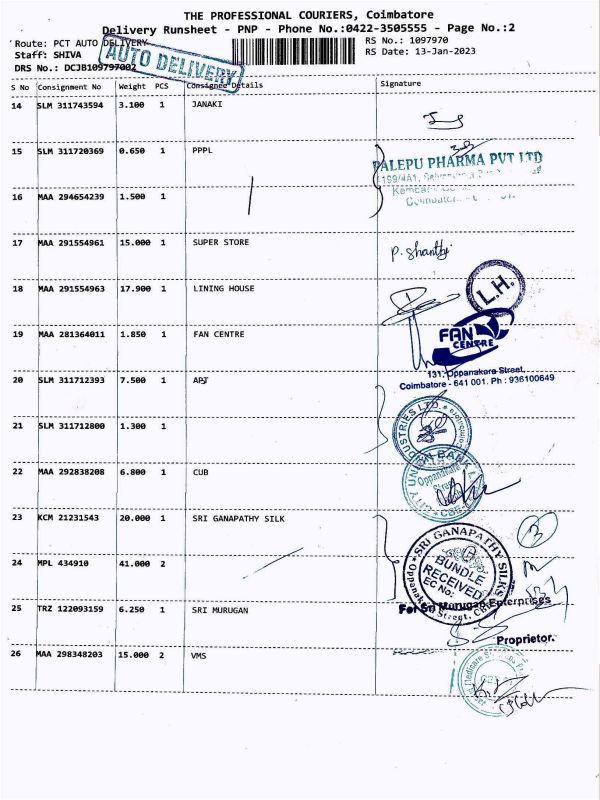 THE PROFESSIONAL COURIERS, Coimbatore
Delivery Runsheet - PNP - Phone No.:0422-3505555 - Page No.:2
Route: PCT AUTO DELIVERY
RS No.: 1097970
Staff: SHIVA
RS Date: 13-Jan-2023
DRS No.: DCJB109797002
AUTO DELIVERY
S No Consignment No Weight PCS Consignee Details Signature
14 SLM 311743594 3.100 1 JANAKI
15 SLM 311720369 0.650 1 PPPL
PALEPU PHARMA PVT LTD
16 MAA 294654239 1.500 1
17 MAA 291554961 15.000 1 SUPER STORE
P. Shanthi
18 MAA 291554963 17.900 1 LINING HOUSE
L.H.
19 MAA 281364011 1.850 1 FAN CENTRE
FAN
CENTRE
131, Oppanakara Street,
Coimbatore - 641 001. Ph : 936100649
20 SLM 311712393 7.500 1 APT
21 SLM 311712800 1.300 1
22 MAA 292838208 6.800 1 CUB
CITY UNION BANK
Oppanakara
23 KCM 21231543 20.000 1 SRI GANAPATHY SILK
SRI GANAPATHY SILKS
BUNDLE
RECEIVED
EC No:
Oppanakara Street, CBE
24 MPL 434910 41.000 2
25 TRZ 122093159 6.250 1 SRI MURUGAN
For Sri Murugan Enterprises
Proprietor.
26 MAA 298348203 15.000 2 VMS